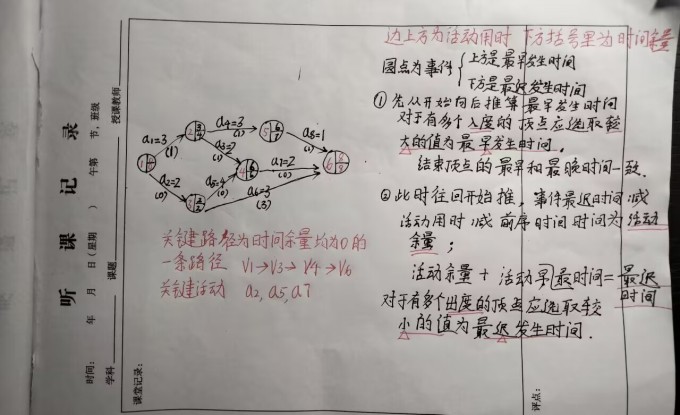 听 课 记 录
时间: 年 月 日(星期 ) 午第 节,班级
学科 课题 授课教师
课堂记录:
评点:
边上方为活动用时 下方括号里为时间余量
圆点为事件 上方是最早发生时间
下方是最迟发生时间
① 先从开始向后推算最早发生时间
对于有多个入度的顶点应选取较
大的值为最早发生时间.
结束顶点的最早和最晚时间一致.
②此时往回开始推,事件最迟时间减
活动用时减前序时间时间为活动
余量;
活动余量+活动早最时间=最迟
时间
对于有多个出度的顶点应选取较
小的值为最迟发生时间.
a1=3
(1)
a4=3
(1)
a8=1
(1)
=2
a7=2
(0)
a2=2
(0)
a5=4
(0)
a6=3
(3)
关键路径为时间余量均为0的
一条路径 V1→V3→V4→V6
关键活动 a2,a5,a7